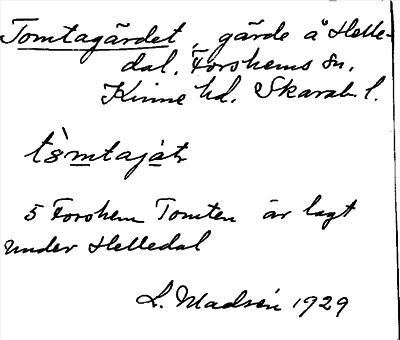 Tomtagärdet, gärde å Helle-
dal, Forshems sn,
Kinne hd. Skarab. l.
5 Forshem Tomten är lagt
under Helledal
L. Madsén 1929